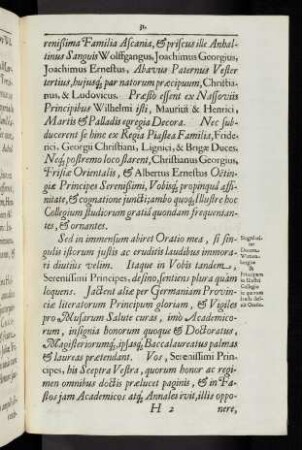 renissima Familia Ascania, & priscus ille Anhal-
tinus Sanguis Wolffgangus, Joachimus Georgius,
Joachimus Ernestus, Abavus Paternus Vester
tertius, hujusq́, par natorum præcipuum, Christia-
nus, & Ludovicus. Præsto essent ex Nassoviis
Principibus Wilhelmi isti, Mauritii & Henrici,
Martis & Palladis egregia Decora. Nec sub-
ducerent se hinc ex Regia Piastea Familia, Fride-
rici, Georgii Christiani, Lignici, & Brigæ Duces.
Neq́, postremo loco starent, Christianus Georgius,
Frisiæ Orientalis, & Albertus Ernestus Octin-
giæ Principes Serenissimi, Vobisq́, propinquâ affi-
nitate, & cognatione juncti; ambo quoq́, Illustre hoc
Collegium studiorum gratiâ quondam frequentan-
tes, & ornantes.
Sed in immensum abiret Oratio mea, si sin-
gulis istorum justis ac eruditis laudibus immora-
ri diutiùs velim. Itaque in Vobis tandem,
Serenissimi Principes, desino, sentiens plura quàm
loquens. Jactent aliæ per Germaniam Provin-
ciæ literatorum Principum gloriam, & Vigiles
pro Musarum Salute curas, imò Academico-
rum, insignia honorum quoque & Doctoratus,
Magisteriorumq́, ipsasq́, Baccalaureatus palmas
& laureas prætendant. Vos, Serenissimi Prin-
cipes, his Sceptra Vestra, quorum honor ac regi-
men omnibus doctis prælucet paginis, & in Fa-
stos jam Academicos atq́, Annales ivit, illis oppo-
H 2 nere,
Decora,
Principum
Collegio